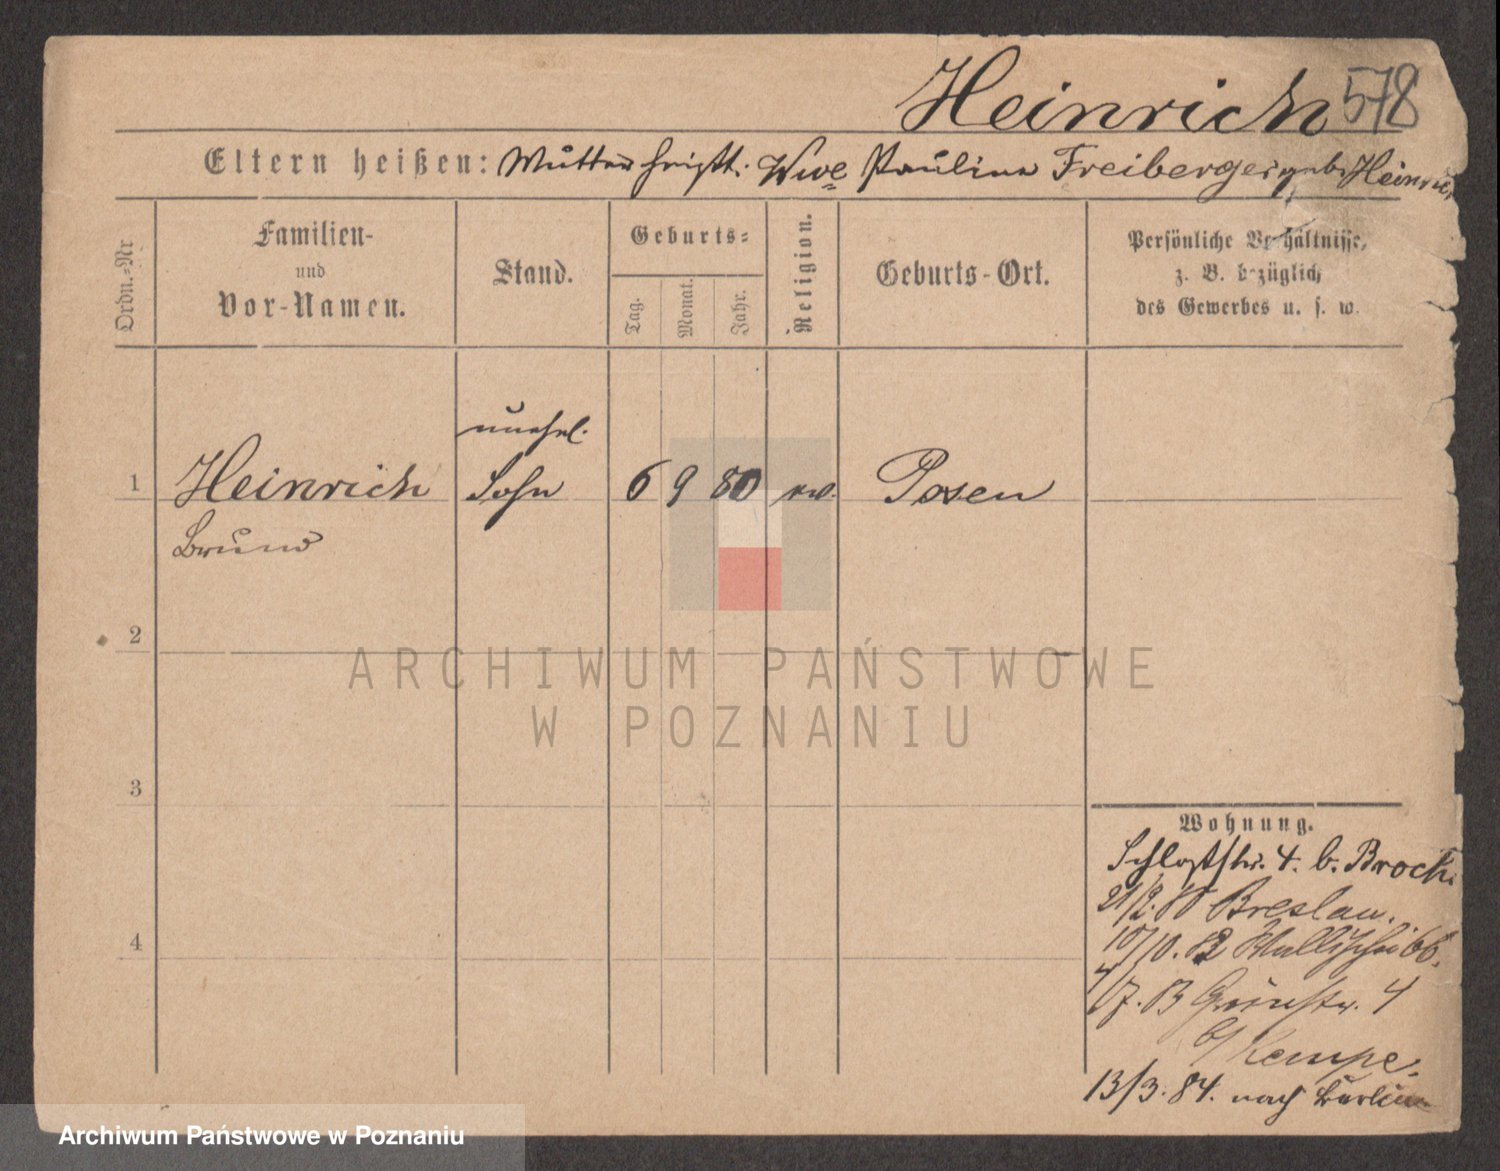 Heinrich 578
Eltern heißen: Mutter heißt: Wwe Pauline Freiberger geb. Heinrich
Ordn.-Nr
Familien-
und
Vor-Namen.
Stand.
Geburts-
Tag.
Monat.
Jahr.
Religion.
Geburts-Ort.
Persönliche Verhältnisse,
z. B. bezüglich
des Gewerbes u. s. w.
unehel.
1 Heinrich Sohn 6 9 80 ev. Posen
Bruno
2
ARCHIWUM PAŃSTWOWE
W POZNANIU
3
Wohnung.
Schloßstr. 4. b. Brock
Breslau.
4
10/10. 82 Wallischei 66.
Grünstr. 4
b/ Kempe.
13/3. 84. nach Berlin
Archiwum Państwowe w Poznaniu